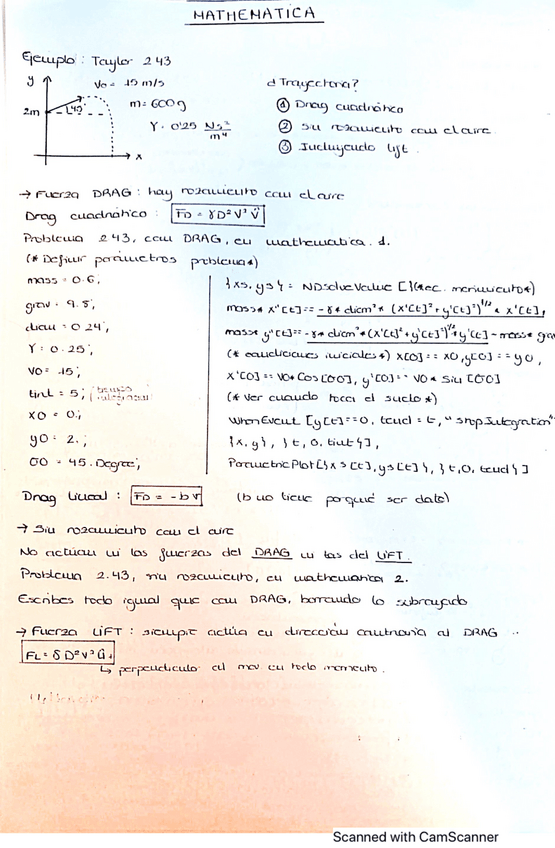 MATHEMATICA
Ejemplo: Taylor 2.43
y
Vo = 15 m/s
m = 600g
γ = 0'25 Ns²/m⁴
2m
45
x
d Trayectoria?
① Drag cuadrático
② Sin rozamiento con el aire.
③ Incluyendo lift.
→ Fuerza DRAG: hay rozamiento con el aire
Drag cuadrático: FD = γD²V³V̂
Problema 2.43, con DRAG, en mathematica. 1.
(* Definir parámetros problema*)
mass = 0.6;
grav = 9.8;
diam = 0.24;
γ = 0.25;
VO = 15;
tint = 5;
XO = 0.;
yO = 2.;
ΘO = 45. Degree;
{xs, ys} = NDSolveValue [{(*ec. movimiento*)
mass* x''[t] == -γ* diam²* (x'[t]²+y'[t]²)^1/2 * x'[t],
mass* y''[t] == -γ* diam²*(x'[t]²+y'[t]²)^1/2* y'[t] - mass* gra
(* condiciones iniciales *) x[0] == XO, y[0] == yO,
x'[0] == VO* Cos[ΘO], y'[0] == VO* Sin [ΘO]
(* Ver cuando toca el suelo *)
WhenEvent [y[t]==0, tend = t, "StopIntegration"
{x, y}, {t, 0, tint}],
ParametricPlot[{xs[t], ys[t]}, {t, 0, tend}]
Drag lineal: FD = -bv (b no tiene porqué ser dato)
→ Sin rozamiento con el aire
No actúan ni las fuerzas del DRAG ni las del LIFT.
Problema 2.43, sin rozamiento, en mathematica 2.
Escribes todo igual que con DRAG, borrando lo subrayado
→ Fuerza LIFT: siempre actúa en dirección contraria al DRAG
FL = δD²V³û⊥
↳ perpendicular al mov en todo momento.
Scanned with CamScanner